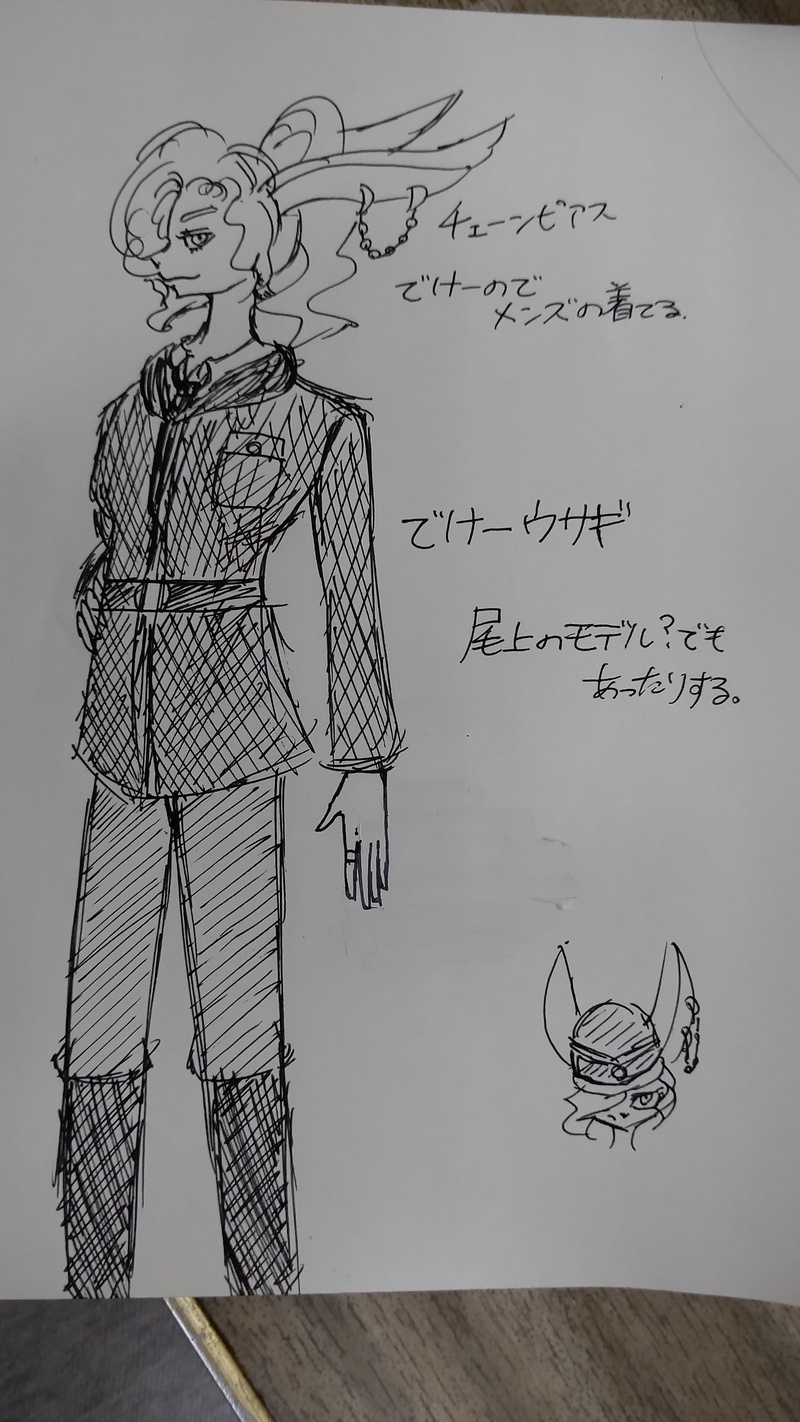 チェーンピアス
でけーので
メンズの着てる.
でけーウサギ
尾上のモデル?でも
あったりする。